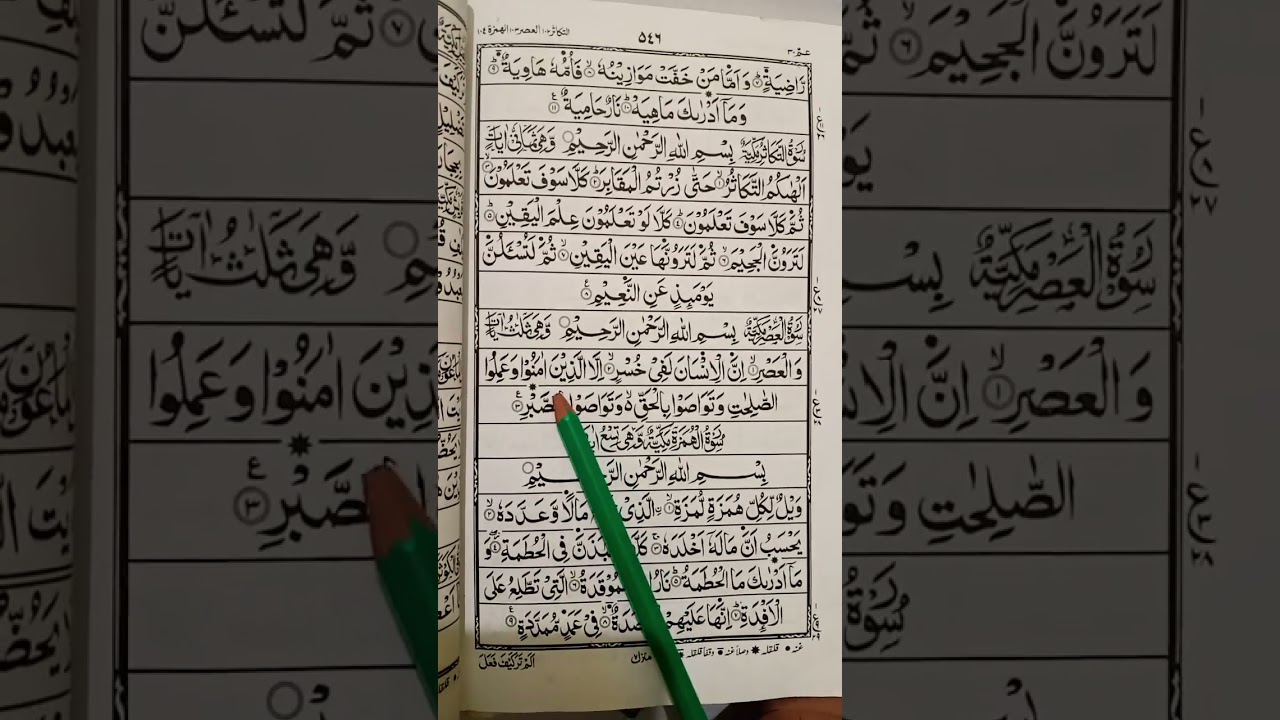 التكاثر ١٠٢ العصر ١٠٣ الهمزة ١٠٤
٥٤٦
عمّ ٣٠
رَّاضِيَةٍ ۙ۷ وَاَمَّا مَنْ خَفَّتْ مَوَازِيْنُهٗ ۙ۸ فَاُمُّهٗ هَاوِيَةٌ ؕ۹
وَمَاۤ اَدْرٰىكَ مَاهِيَهْ ؕ۱۰ نَارٌ حَامِيَةٌ ۱۱
سُوْرَةُ التَّكَاثُرِ مَكِّيَّةٌ بِسْمِ اللهِ الرَّحْمٰنِ الرَّحِيْمِ وَّهِىَ ثَمَانِىْ اٰيَاتٍ
اَلْهٰىكُمُ التَّكَاثُرُ ۙ۱ حَتّٰى زُرْتُمُ الْمَقَابِرَ ؕ۲ كَلَّا سَوْفَ تَعْلَمُوْنَ ۙ۳
ثُمَّ كَلَّا سَوْفَ تَعْلَمُوْنَ ؕ۴ كَلَّا لَوْ تَعْلَمُوْنَ عِلْمَ الْيَقِيْنِ ؕ۵
لَتَرَوُنَّ الْجَحِيْمَ ۙ۶ ثُمَّ لَتَرَوُنَّهَا عَيْنَ الْيَقِيْنِ ۙ۷ ثُمَّ لَتُسْـَٔلُنَّ
يَوْمَىِٕذٍ عَنِ النَّعِيْمِ ۸
سُوْرَةُ الْعَصْرِ مَكِّيَّةٌ بِسْمِ اللهِ الرَّحْمٰنِ الرَّحِيْمِ وَّهِىَ ثَلٰثُ اٰيَاتٍ
وَالْعَصْرِ ۙ۱ اِنَّ الْاِنْسَانَ لَفِىْ خُسْرٍ ۙ۲ اِلَّا الَّذِيْنَ اٰمَنُوْا وَعَمِلُوا
الصّٰلِحٰتِ وَتَوَاصَوْا بِالْحَقِّ ۙ۬ وَتَوَاصَوْا الصَّبْرِ ۳
سُوْرَةُ الْهُمَزَةِ مَكِّيَّةٌ وَّهِىَ تِسْعُ
بِسْمِ اللهِ الرَّحْمٰنِ الرَّحِيْمِ
وَيْلٌ لِّكُلِّ هُمَزَةٍ لُّمَزَةٍ ۙ۱ الَّذِىْ مَالًا وَّعَدَّدَهٗ ۙ۲
يَحْسَبُ اَنَّ مَالَهٗۤ اَخْلَدَهٗ ۚ۳ كَلَّا فِى الْحُطَمَةِ ۴ وَ
مَاۤ اَدْرٰىكَ مَا الْحُطَمَةُ ؕ۵ نَارُ الْمُوْقَدَةُ ۙ۶ الَّتِىْ تَطَّلِعُ عَلَى
الْاَفْـِٕدَةِ ؕ۷ اِنَّهَا عَلَيْهِمْ ۙ۸ فِىْ عَمَدٍ مُّمَدَّدَةٍ ۹
غنه قلقله
منزل ۷
اَلَمْ تَرَ كَيْفَ فَعَلَ